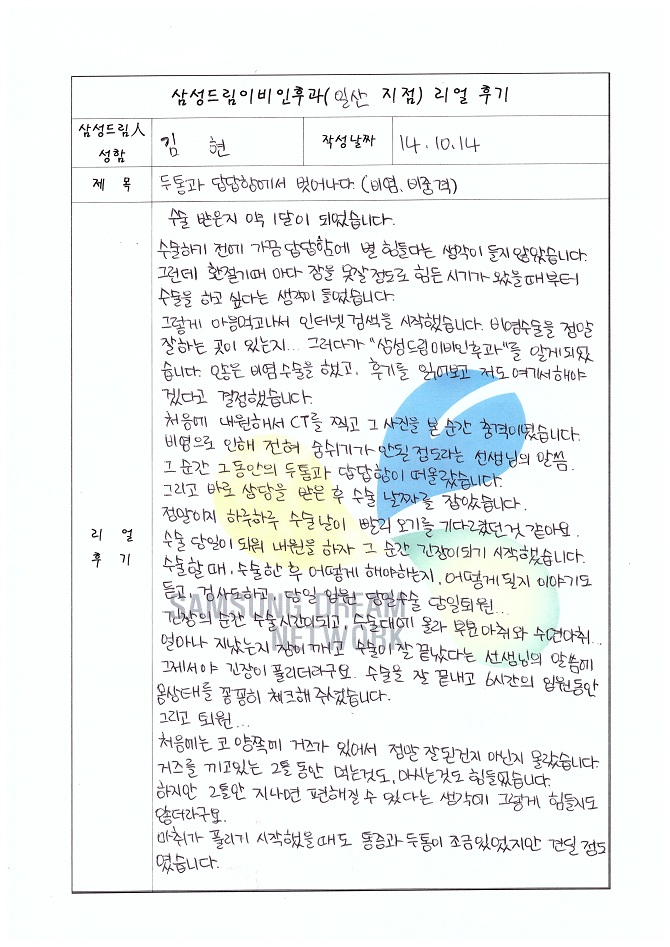 삼성드림이비인후과(일산 지점) 리얼 후기
삼성드림人 성함 김 현 작성날짜 14.10.14
제 목 두통과 답답함에서 벗어나다. (비염, 비중격)
리 얼 후 기
수술 받은지 약 1달이 되었습니다.
수술하기 전에 가끔 답답함에 별 힘들다는 생각이 들지 않았습니다.
그런데 환절기때 마다 잠을 못잘 정도로 힘든 시기가 왔을 때부터
수술을 하고 싶다는 생각이 들었습니다.
그렇게 마음먹고나서 인터넷 검색을 시작했습니다. 비염수술을 정말
잘하는 곳이 있는지... 그러다가 "삼성드림이비인후과"를 알게되었
습니다. 많은 비염수술을 했고, 후기를 읽어보고 저도 여기서 해야
겠다고 결정했습니다.
처음에 내원해서 CT를 찍고 그 사진을 본 순간 충격이였습니다.
비염으로 인해 전혀 숨쉬기가 안될 정도라는 선생님의 말씀.
그 순간 그동안의 두통과 답답함이 떠올랐습니다.
그리고 바로 상담을 받은 후 수술 날짜를 잡았습니다.
정말이지 하루하루 수술날이 빨리 오기를 기다렸던것 같아요.
수술 당일이 되워 내원을 하자 그 순간 긴장이되기 시작했습니다.
수술할 때, 수술한 후 어떻게 해야하는지, 어떻게 될지 이야기도
듣고, 검사도하고, 당일 입원 당일수술 당일퇴원...
긴장의 순간 수술시간이되고, 수술대에 올라 부분마취와 수면마취...
얼마나 지났는지 잠이 깨고 수술이 잘 끝났다는 선생님의 말씀에
그제서야 긴장이 풀리더라구요. 수술을 잘 끝내고 6시간의 입원동안
몸상태를 꼼꼼히 체크해 주셨습니다.
그리고 퇴원...
처음에는 코 양쪽에 거즈가 있어서 정말 잘된건지 아닌지 몰랐습니다.
거즈를 끼고있는 2틀 동안 먹는것도, 마시는것도 힘들었습니다.
하지만 2틀만 지나면 편해질 수 있다는 생각에 그렇게 힘들지도
않더라구요.
마취가 풀리기 시작했을 때도 통증과 두통이 조금있었지만 견딜 정도
였습니다.
SAMSUNG DREAM
NETWORK